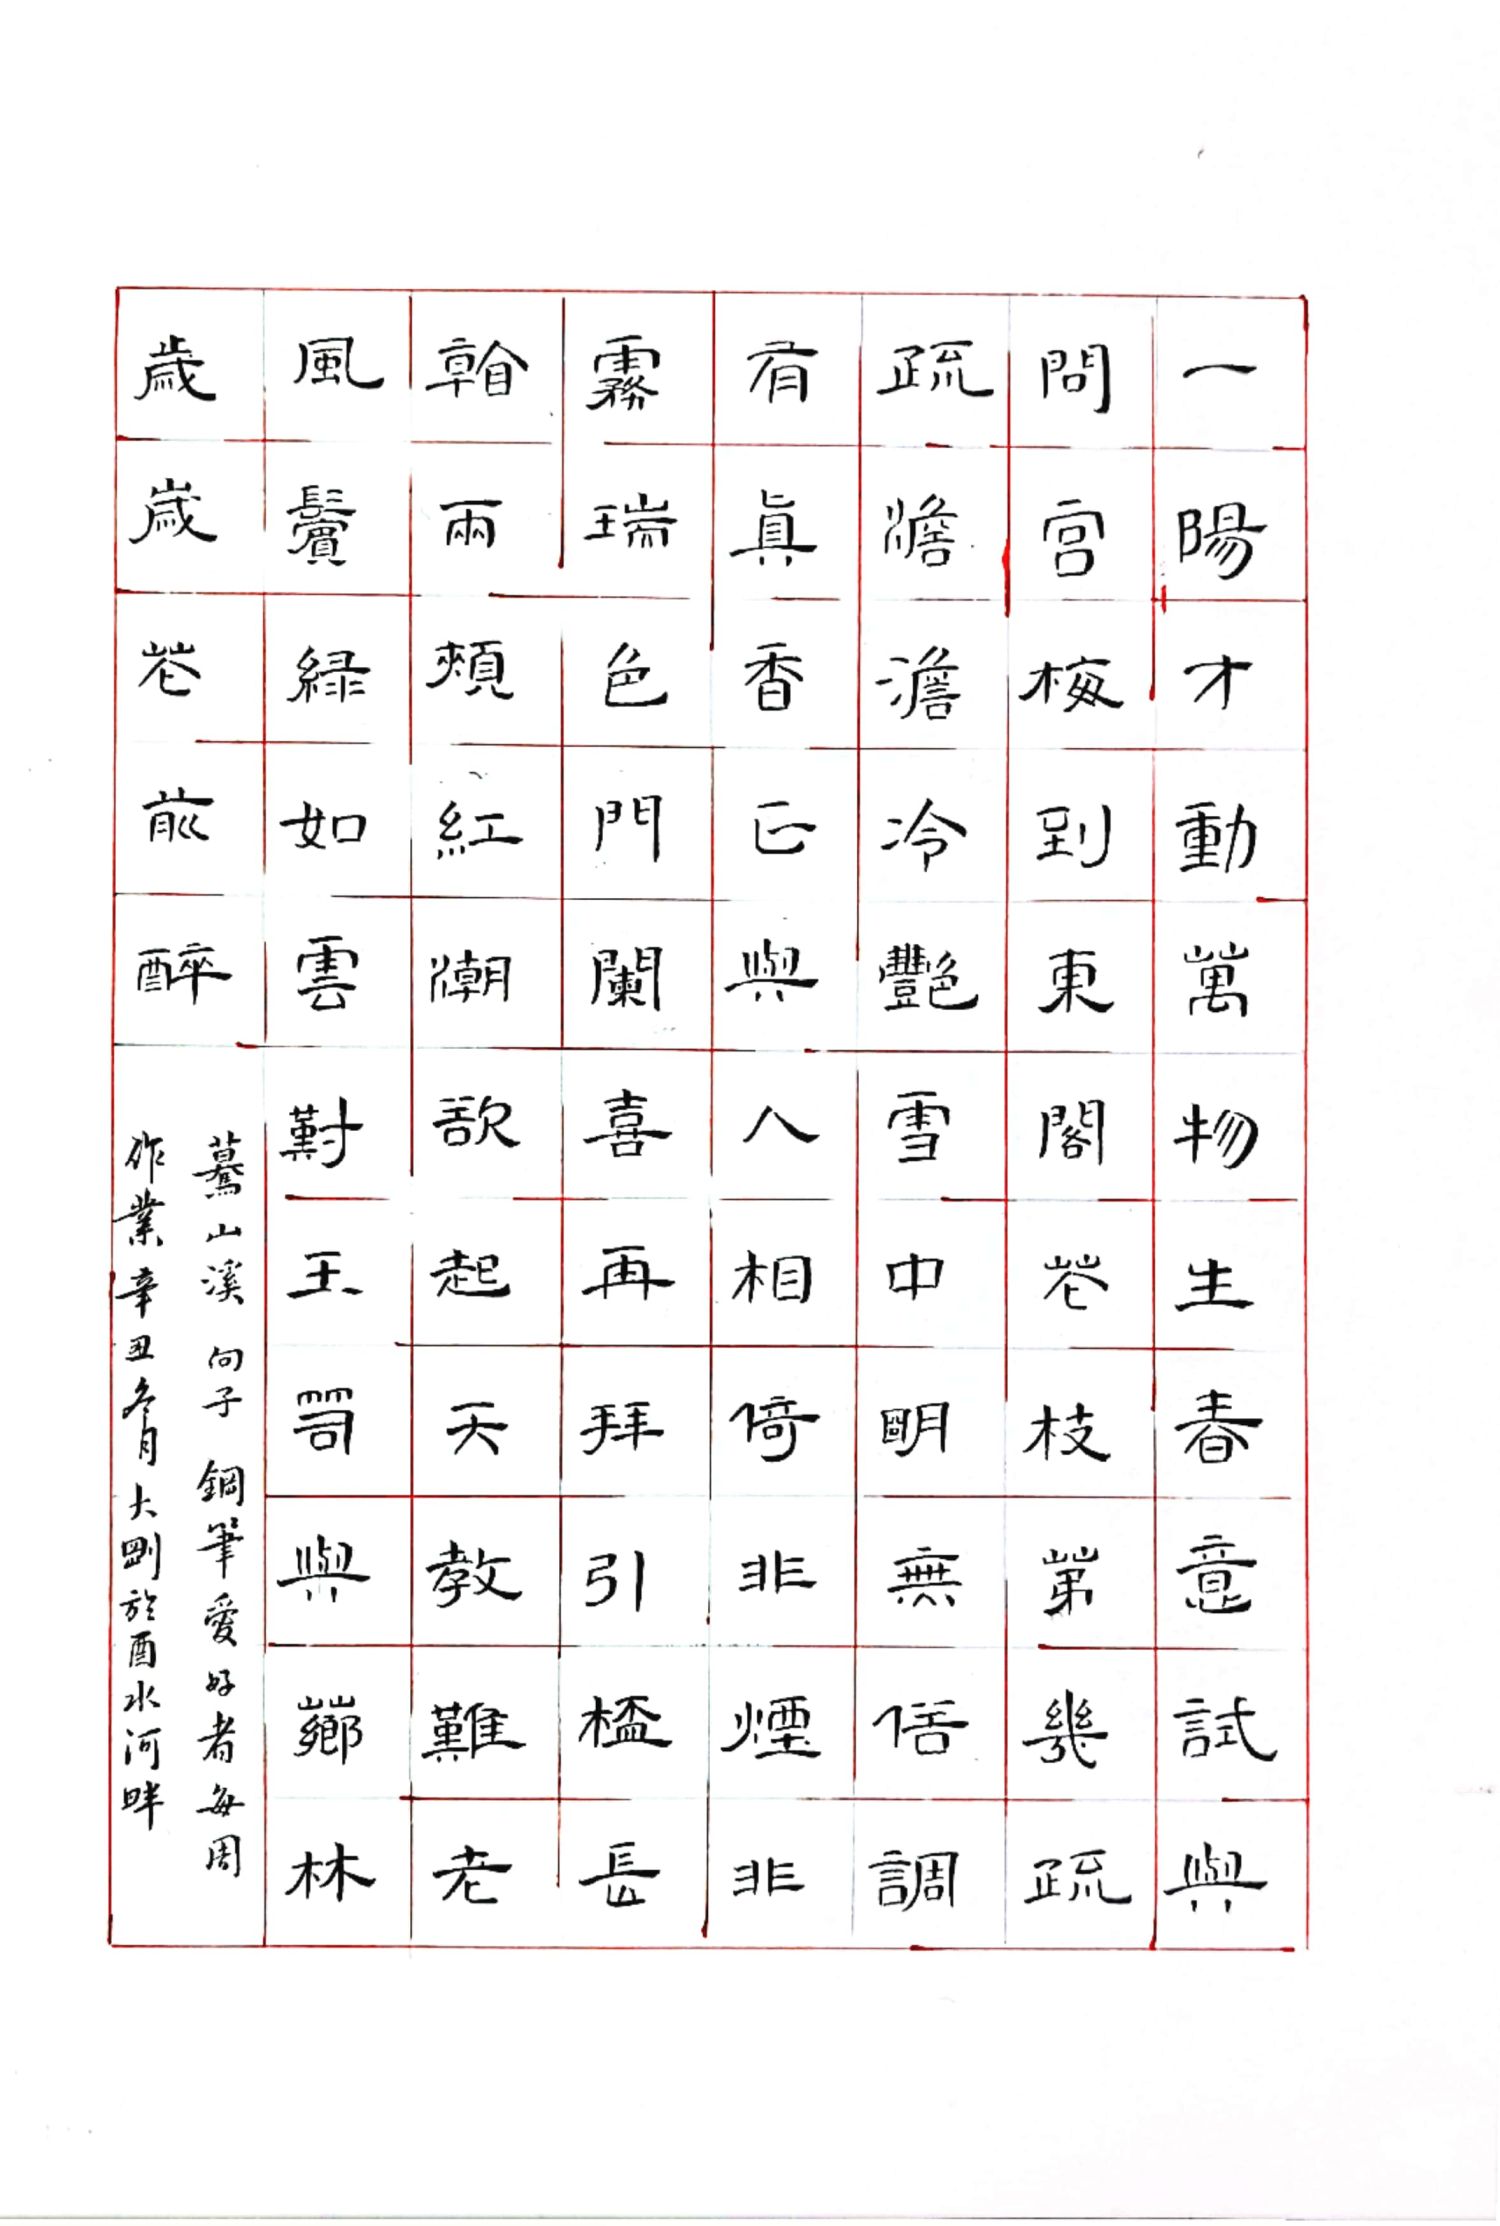 一陽才動萬物生春意試與
問宮梅到東閣花枝第幾疏
疏澹澹冷艷雪中明無俗調
有真香正與人相倚非煙非
霧瑞色門闌喜再拜引杯長
看兩頰紅潮欲起天教難老
風鬢綠如雲對玉笥與薌林
歲歲花前醉
驀山溪句子鋼筆愛好者每周
作業辛丑冬月大剛於酉水河畔